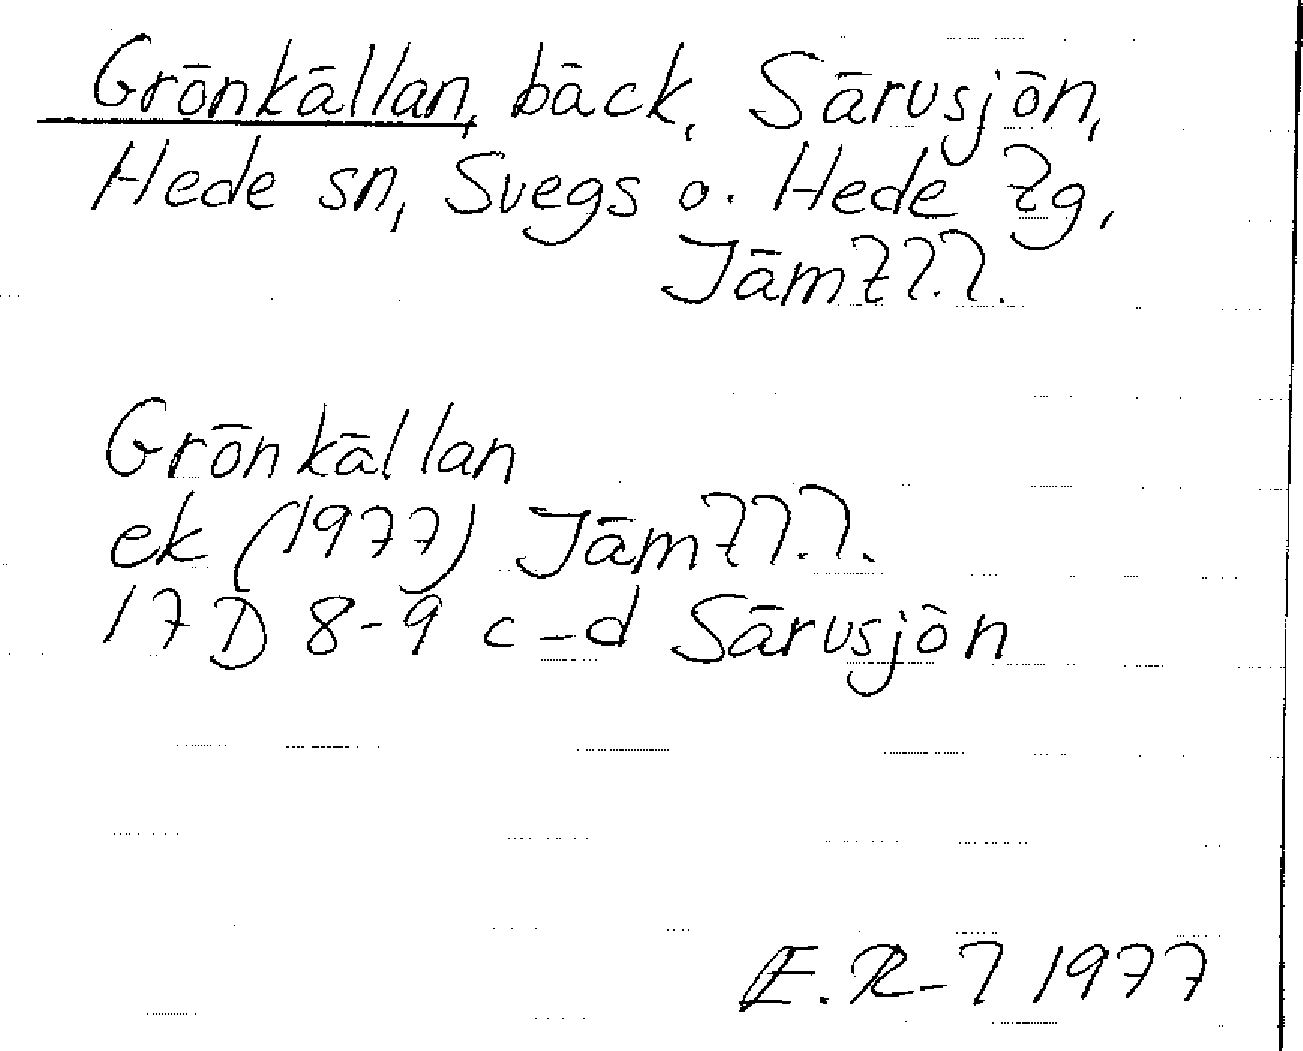 Grönkällan, bäck, Särvsjön,
Hede sn, Svegs o. Hede tg,
Jämtl.l.
Grönkällan
ek (1977) Jämtl.l.
17D 8-9 c-d Särvsjön
E.R-l 1977